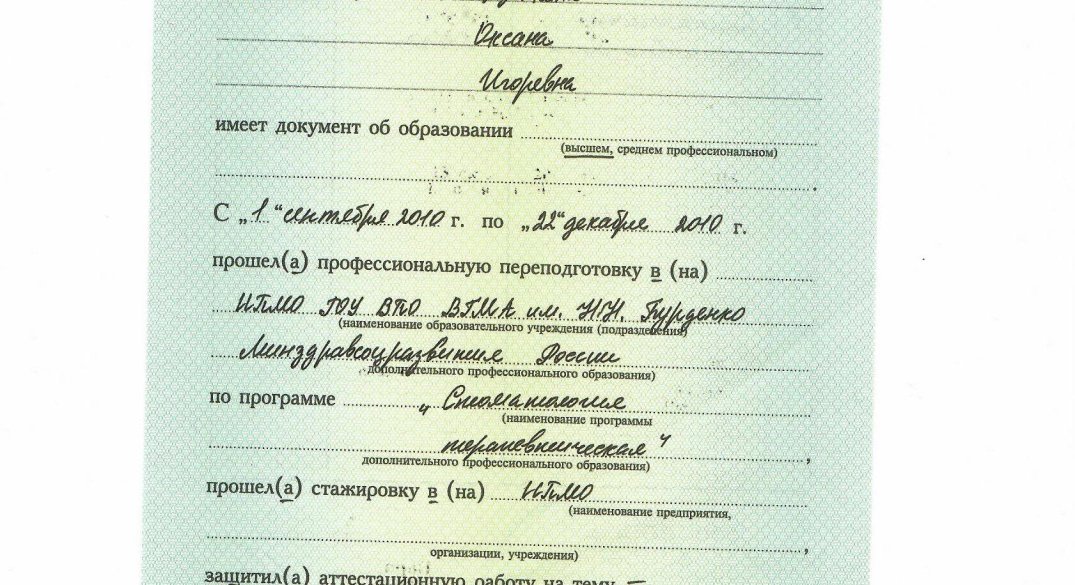 Оксана
Игоревна
имеет документ об образовании
(высшем, среднем профессиональном)
С „1“ сентября 2010 г. по „22“ декабря 2010 г.
прошел(а) профессиональную переподготовку в (на)
ИПМО ГОУ ВПО ВГМА им. Н.Н. Бурденко
(наименование образовательного учреждения (подразделения)
Минздравсоцразвития России
дополнительного профессионального образования)
по программе „Стоматология
(наименование программы
терапевтическая“,
дополнительного профессионального образования)
прошел(а) стажировку в (на) ИПМО
(наименование предприятия,
организации, учреждения)
защитил(а) аттестационную работу на тему —